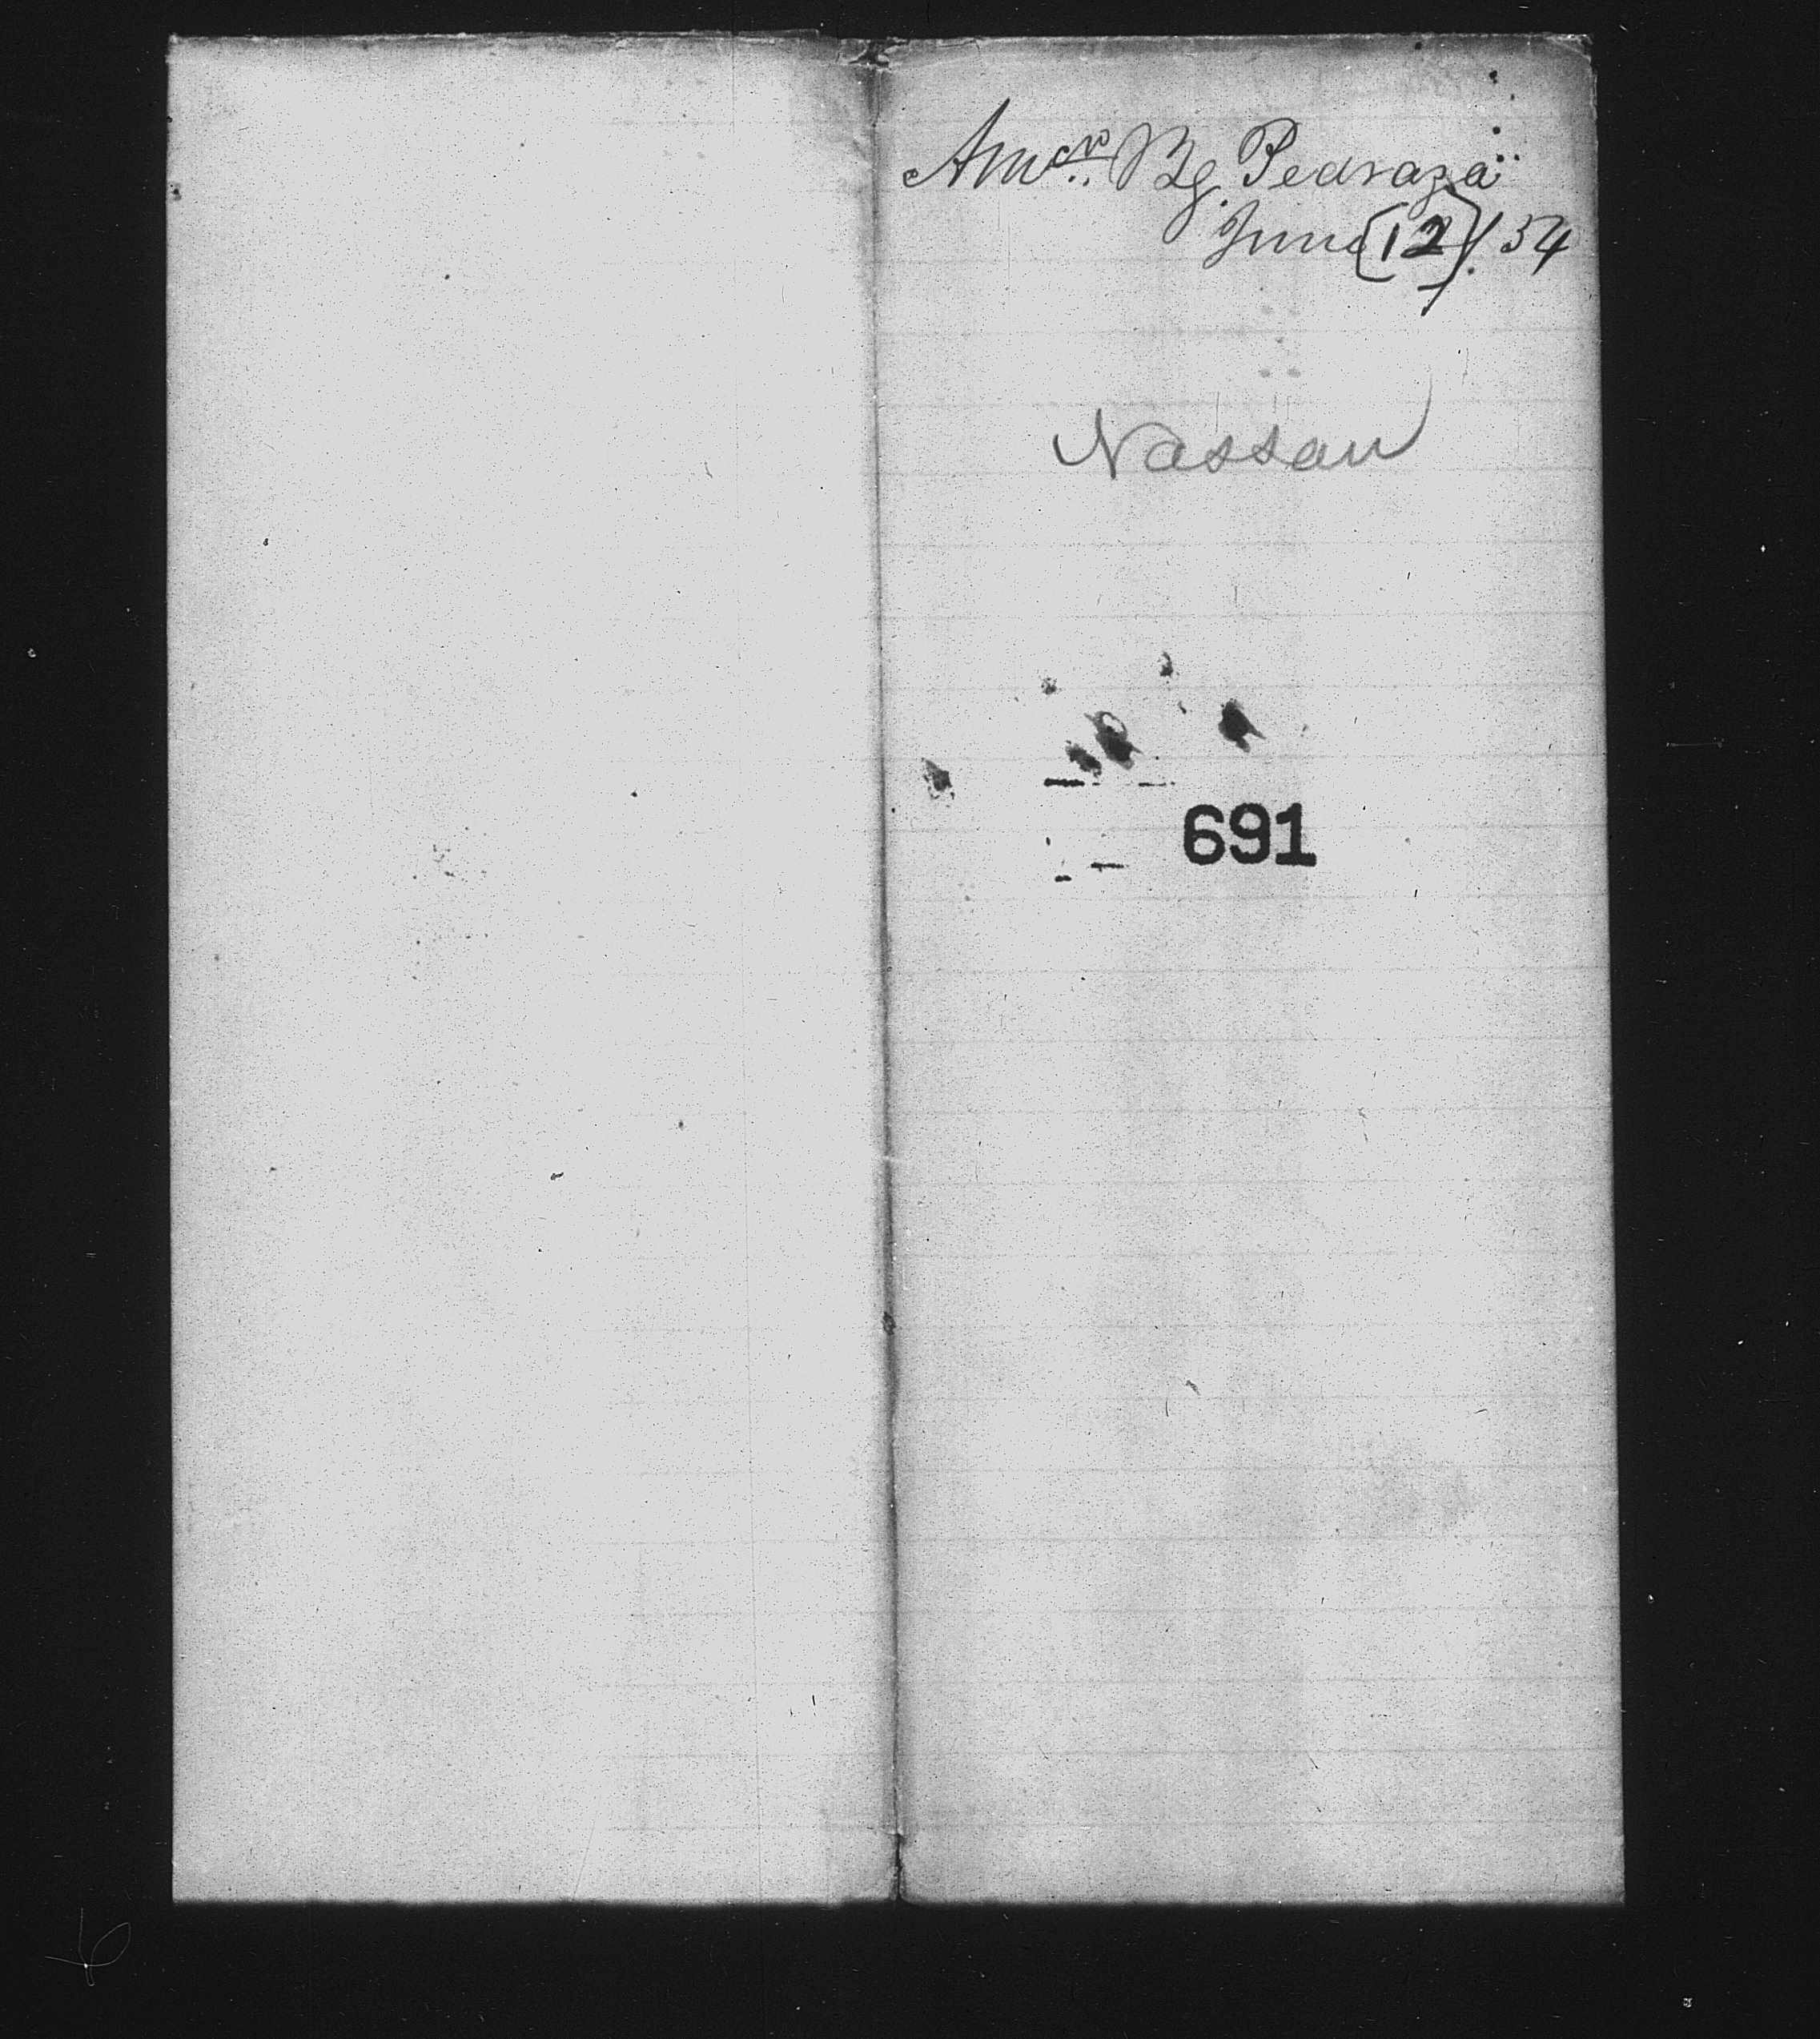 Amcn. Bg. Pedraza
June (12) /54
Nassau
691